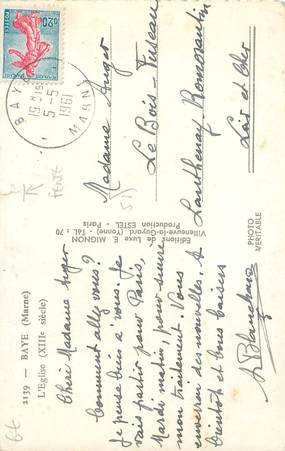 2139 - BAYE (Marne)
L'Eglise (XIIIe siècle)
Chère Madame Auger
Comment allez vous?
Je pense bien à vous. Je
vais partir pour Paris,
Mardi matin, pour suivre
mon traitement. Vous
enverrai des nouvelles. A
bientôt et bons baisers
Editions de Luxe E. MIGNON
Villeneuve-la-Guyard (Yonne) - Tél. : 70
Production ESTEL - Paris
PHOTO
VÉRITABLE
0,20
POSTES
BAYE
19H15
5-5
1961
MARNE
Madame Auger
Le Bois
Lanthenay Romorantin
Loir et Cher